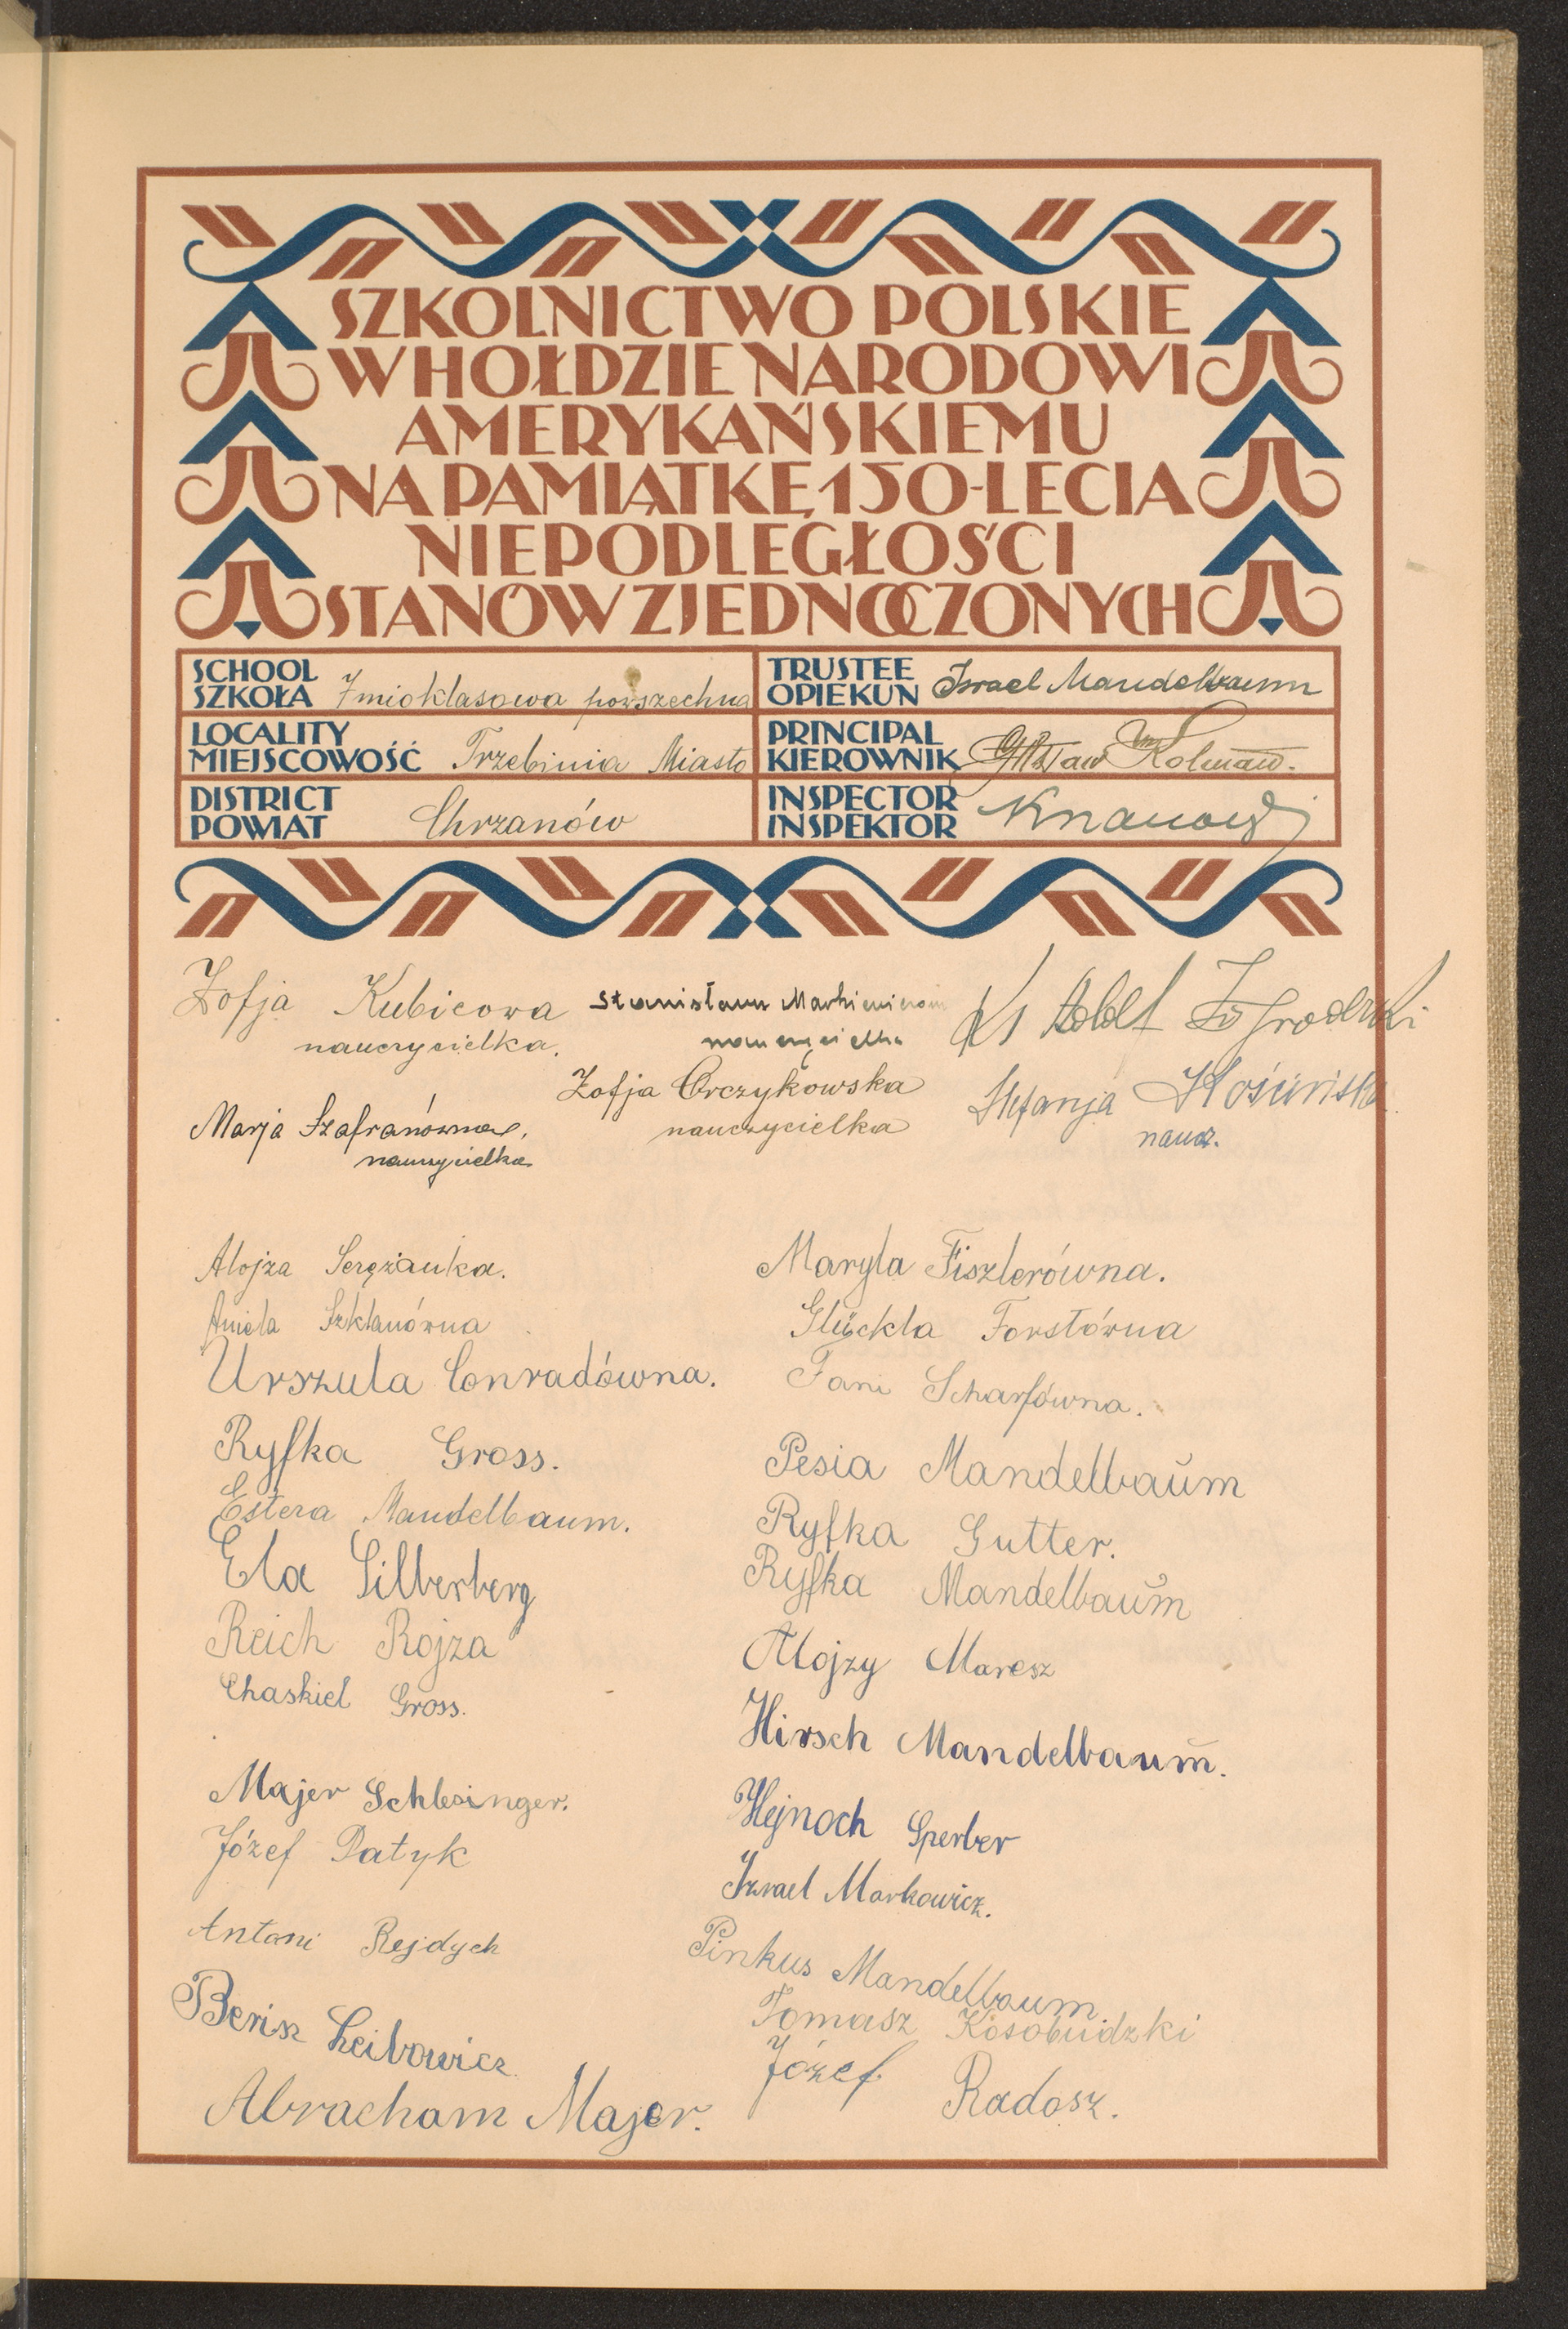 SZKOLNICTWO POLSKIE
W HOŁDZIE NARODOWI
AMERYKAŃSKIEMU
NA PAMIĄTKĘ 150-LECIA
NIEPODLEGŁOŚCI
STANÓW ZJEDNOCZONYCH
SCHOOL
SZKOŁA 7mioklasowa powszechna
TRUSTEE
OPIEKUN Israel Mandelbaum
LOCALITY
MIEJSCOWOŚĆ Trzebinia Miasto
PRINCIPAL
KIEROWNIK Gustaw Kolman.
DISTRICT
POWIAT Chrzanów
INSPECTOR
INSPEKTOR
Zofja Kubicowa
nauczycielka.
Stanisława
nauczycielka
Ks
Marja Szafranówna,
nauczycielka
Zofja Orczykowska
nauczycielka
Stefanja
naucz.
Alojza Serężanka.
Aniela Szklanówna
Urszula Conradówna.
Ryfka Gross.
Estera Mandelbaum.
Ela Silberberg
Reich Rojza
Chaskiel Gross.
Majer Schlesinger.
Józef Patyk
Antoni Rejdych
Berisz Leibowicz
Abracham Majer.
Maryla Fiszlerówna.
Glückla Forstówna
Fani Scharfówna.
Pesia Mandelbaŭm
Ryfka Gutter.
Ryfka Mandelbaŭm
Alojzy Maresz
Hirsch Mandelbaum.
Hejnoch Sperber
Izrael Markowicz.
Pinkus Mandelbaum
Tomasz Kosobudzki
Józef Radosz.